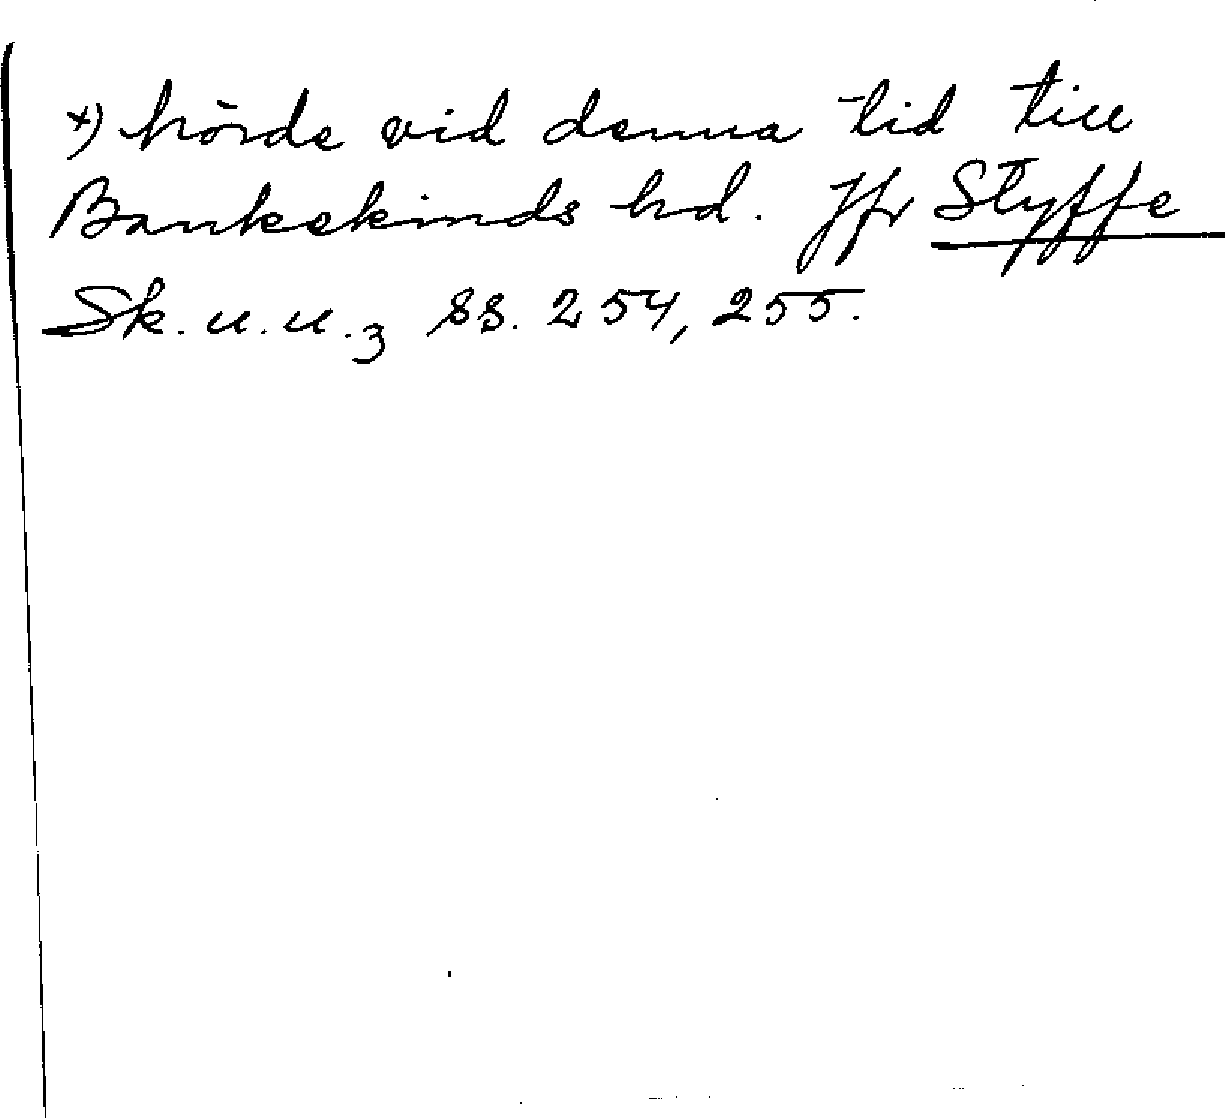 x) hörde vid denna tid till
Bankekinds hd. Jfr Styffe
Sk. u. u. 3 ss. 254, 255.